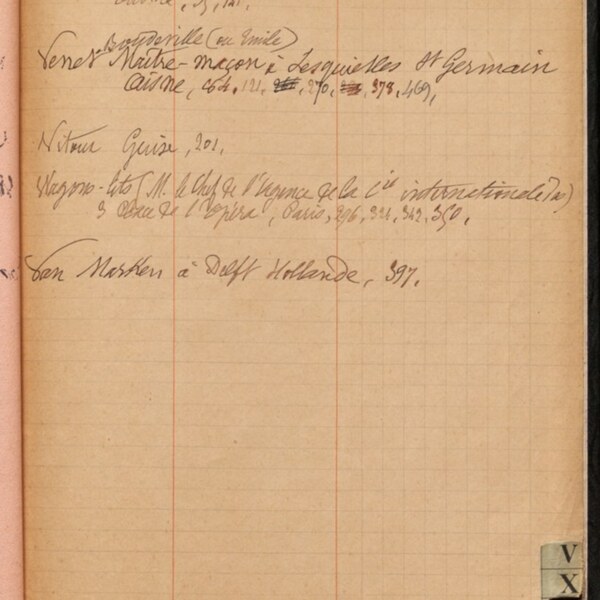 Bondeville (ou Emile)
Vernet Maître-maçon à Lesquielles St Germain
Aisne, 121, 270, 378, 469,
Guise, 201.
Wagons-lits (M. le Chef de l'Agence de la Cie internationale des)
3 Place de l'Opéra, Paris, 296, 324, 342, 350,
Van Marken à Delft Hollande, 397.
V
X